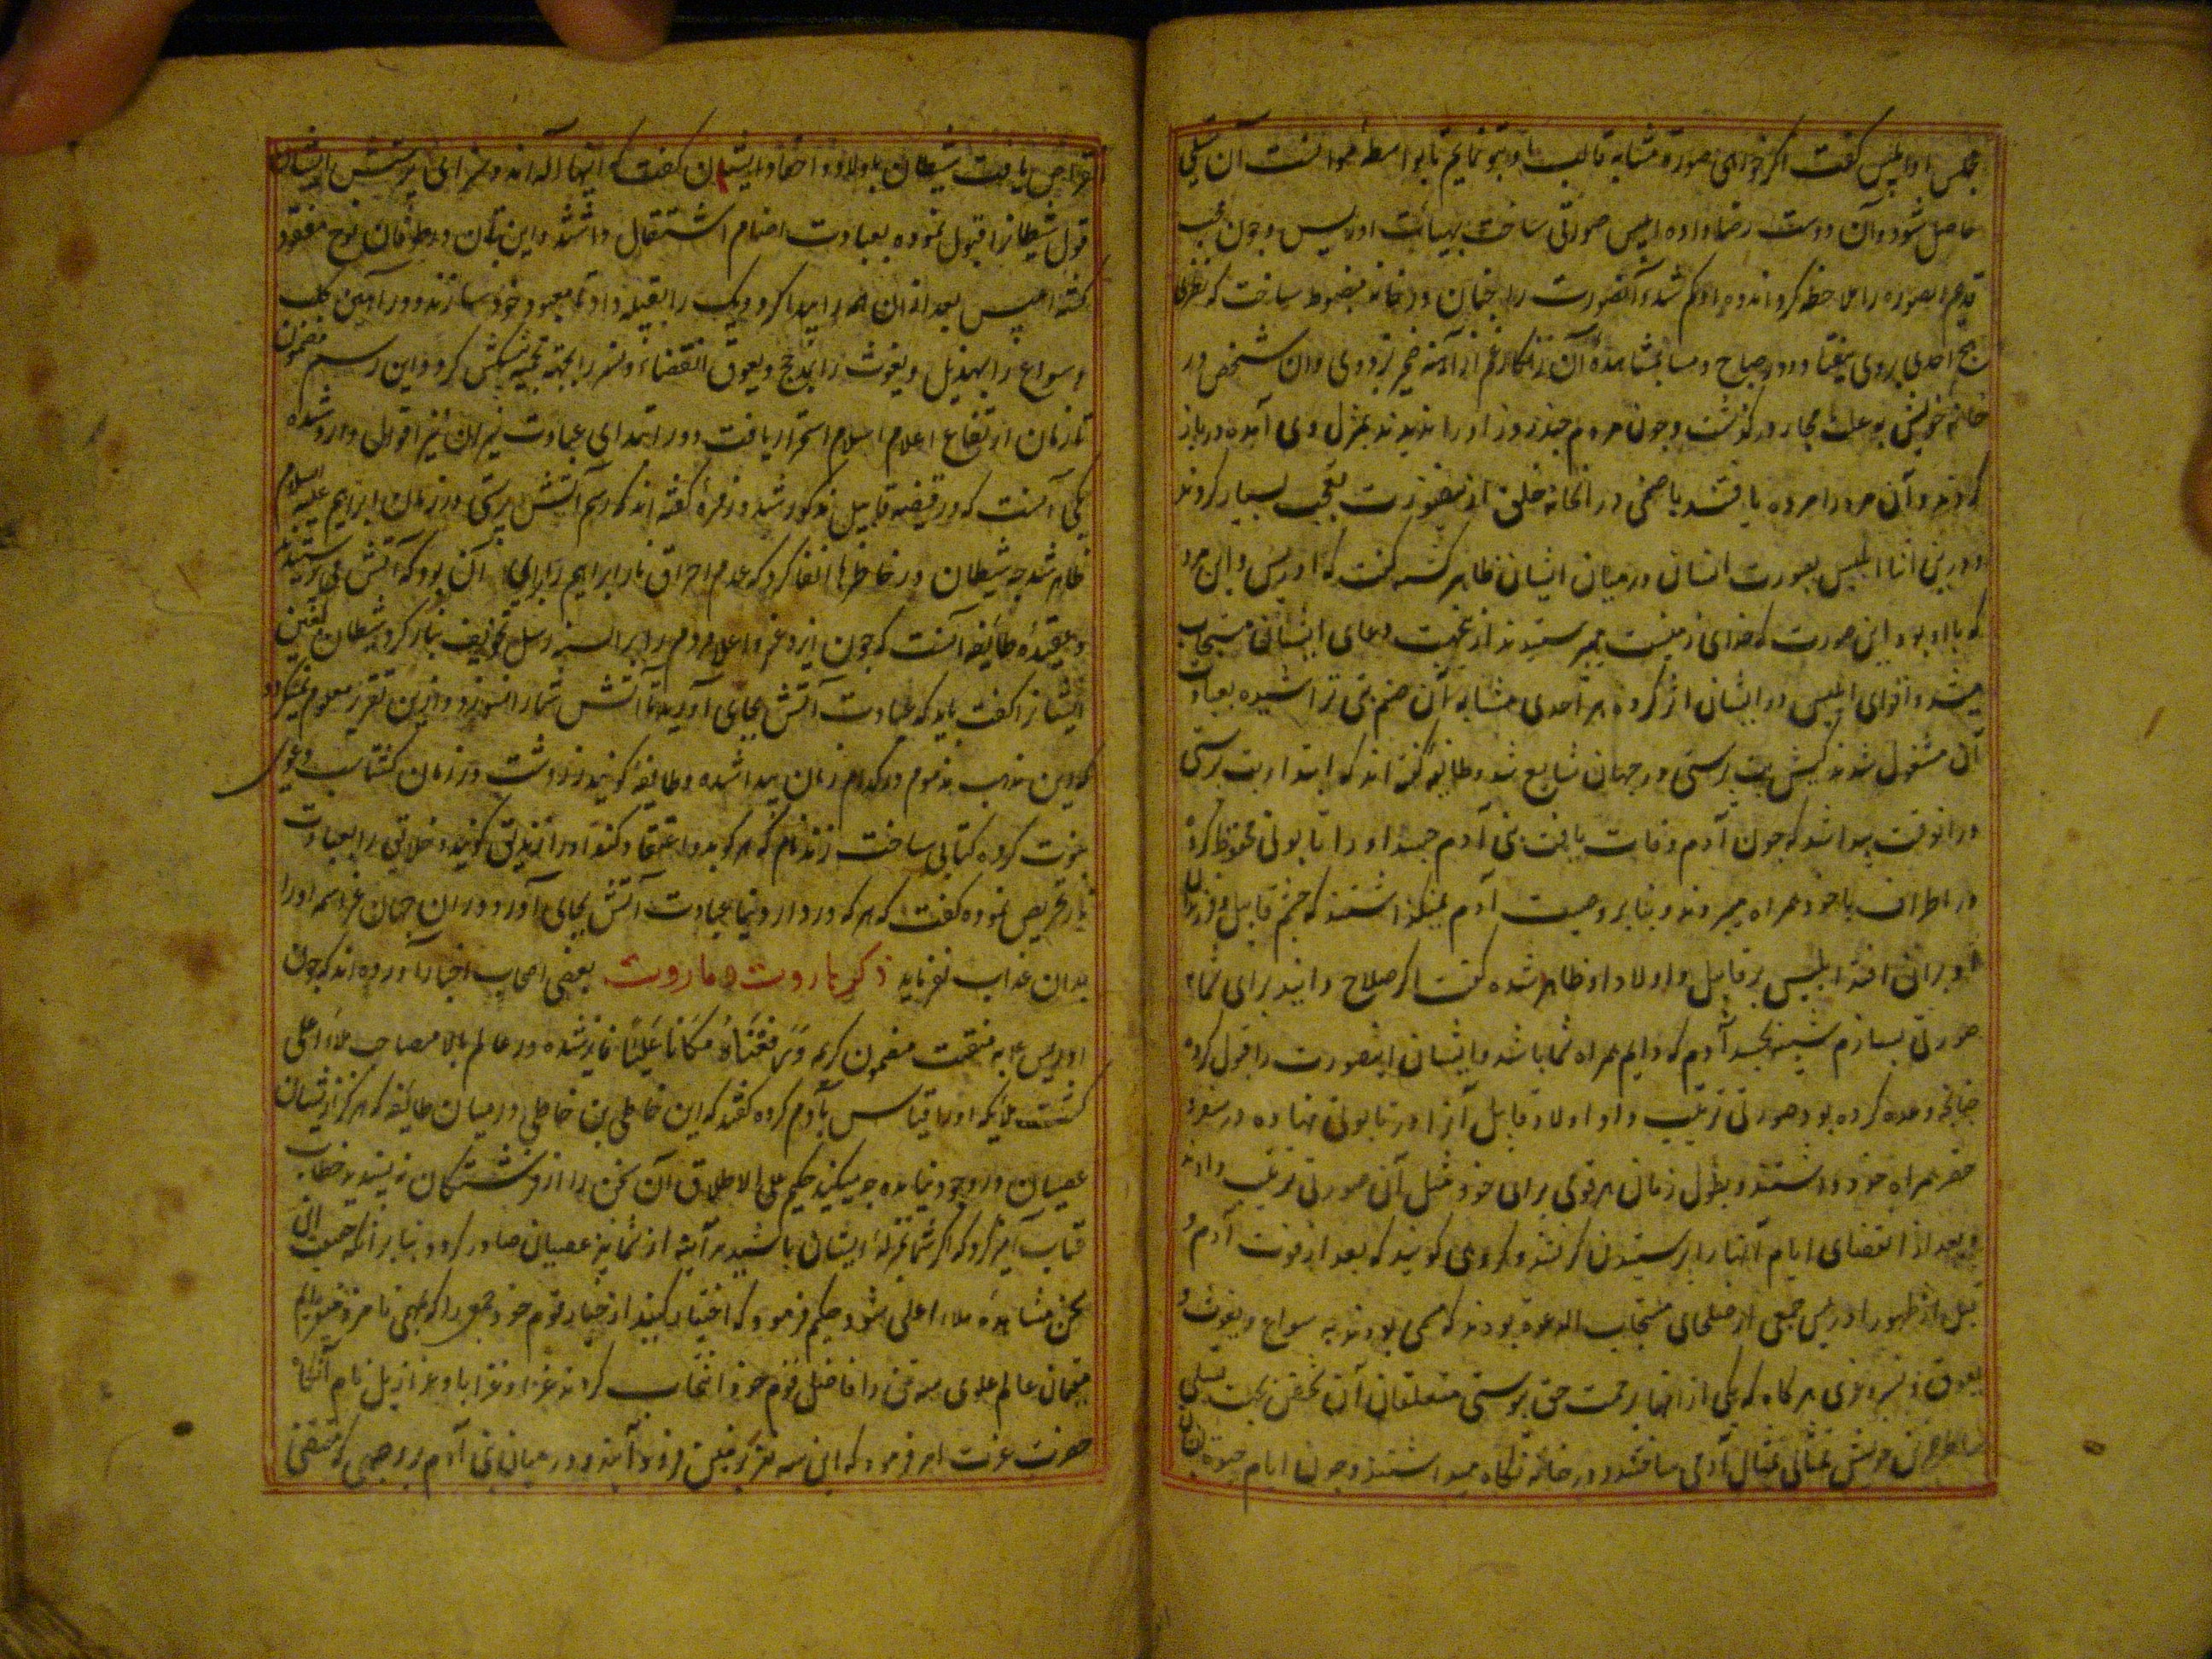 مجلس او ابلیس کفت اکر خواهی صورة مشابه قالب با و بتو نمایم تا بواسطه موانست آن تسلی
حاصل شود و آن دوست رضا داده ابلیس صورتی ساخت بهیات ادریس و چون
آنصورت را چنان در خانه مضبوط ساخت که نظر
هیچ احدی بروی نیفتاد و در صباح و مسا بمشاهده آن زنکار غم از آئینه ضمیر زدودی و ان شخص در
خانه خویش بود در کذشت و چون مردم چند روز او را ندیدند بمنزل وی آمده در باز
کردند و آن مرد را مرده یافتند با صنمی در انخانه خلق از اینصورت تعجب بسیار کردند
و درین اثنا ابلیس بصورت انسان در میان ایشان ظاهر کشته کفت که ادریس و این مرد
که با او بود این صورت که خدای زمینست میپرستیدند از ینجهت دعای ایشان مستجاب
میشد و اغوای ابلیس در ایشان اثر کرده هر احدی مشابه آن صنم بتی تراشیده بعبادت
آن مشغول شدند و کیش بت پرستی در جهان شایع شد و طایفه کفته اند که ابتداء بت پرستی
در انوقت پیدا شد که چون آدم وفات یافت بنی آدم جسد او را تابوتی محفوظ کرده
در اطراف با خود همراه میبردند و بنا بر وصیت آدم نمیکذاشتند که چشم قابیل و فرزندان
او بران افتد ابلیس بر قابیل و اولاد او ظاهر شده کفت اکر صلاح دانید برای شما
صورتی بسازم شبیه بجسد آدم که دایم همراه شما باشد و ایشان اینصورت را قبول کرده
چنانچه وعده کرده بود صورتی ترتیب داد اولاد قابیل آنرا در تابوتی نهاده در سفر و
حضر همراه خود داشتند و بطول زمان هر قومی برای خود مثل آن صورتی ترتیب دادند
و بعد از انقضای ایام آنها را پرستیدن کرفتند و کروهی کویند که بعد از فوت آدم و
قبل از ظهور ادریس جمعی از صلحای مستجاب الدعوه بودند که مسمی بودند به سواع و یغوث و
یعوق و نسر و هر کاه که یکی از انها برحمت حق پیوستی متعلقان آن شخص بجهت تسلی
خاطر خویش تمثالی بمثال آدمی ساختند و در خانه نکاه میداشتند و چون ایام حیوة
انقراض یافت شیطان باولاد و احفاد ایشان کفت که اینها آلهه اند و سزای پرستش ایشان
قول شیطانرا قبول نموده بعبادت اصنام اشتغال داشتند و این بتان در طوفان نوح مفقود
کشته ابلیس بعد از ان همه را پیدا کرد و یک را بقبیله داد تا معبود خود سازند
و سواع را بهذیل و یغوث را بمذحج و یعوق و نسر را پیشکش کرد و این رسم
تا زمان ارتفاع اعلام اسلام استمرار یافت و در ابتدای عبادت نیران نیز اقوال وارد شده
یکی آنست که در قضیه قابیل مذکور شد و زمرهٔ کفته اند که رسم آتش پرستی در زمان ابراهیم علیه السلام
ظاهر شد چه شیطان در خاطرها القا کرد که عدم احراق نار ابراهیم را برای آن بود که آتش می پرستید
و عقیده طایفه آنست که چون
ایشانرا کفت باید که عبادت آتش بجای آورید تا آتش شما را نسوزد و ازین تقریر معلوم نمیکردد
که این مذهب مذموم در کدام زمان پیدا شده و طایفه کویند زردشت در زمان کشتاسب دعوی
نبوت کرده کتابی ساخت زند نام که هر که بدو اعتقاد کند او را زندیق کویند و خلایق را بعبادت
نار تحریص نموده کفت که هر که در دار دنیا عبادت آتش بجای آورد در ان جهان او را
بدان عذاب نفرماید ذکر هاروت و ماروت بعضی اصحاب اخبار آورده اند که چون
ادریس ع به منقبت مضمون کریمه وَرَفَعْنَاهُ مَکَانًا عَلِیًّا فایز شده در عالم بالا مصاحب ملاء اعلی
کشت ملایکه او را قیاس بآدم کرده کفتند که این خاطی بن خاطی در میان طایفه که هرکز از ایشان
عصیان در وجود نیامده چه میکند حکیم علی الاطلاق آن سخن را از فرشتکان نه پسندیده خطاب
عتاب آمیز کرد که اکر شما بمنزله ایشان باشید هر آینه از شما نیز عصیان صادر کردد
بمن مشاهده ملاء اعلی شود حکم فرمود که اختیار کنید از خیار قوم خود جمعی را که
مقیمان عالم علوی سه تن را از افاضل قوم خود انتخاب کردند عزا و عزایا و عزازیل نام آنکاه
حضرت عزت امر فرمود که این سه نفر بزمین فرود آیند و در میان بنی آدم بر وجهی که مقتضی